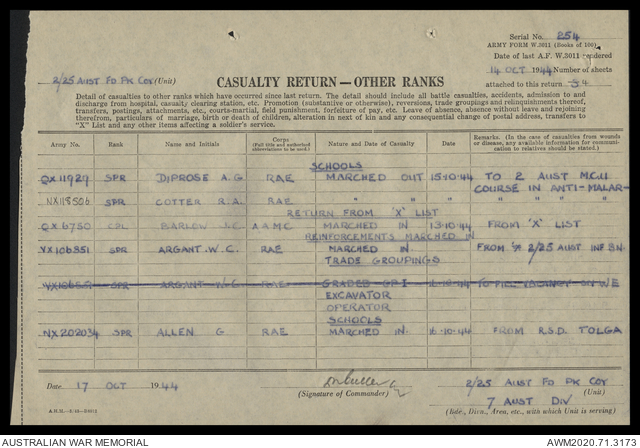 Serial No. 254
ARMY FORM W.3011 (Books of 100)
Date of last A.F. W.3011 rendered
2/25 AUST FD PK COY (Unit)
CASUALTY RETURN—OTHER RANKS
14 OCT 1944 Number of sheets
attached to this return
Detail of casualties to other ranks which have occurred since last return. The detail should include all battle casualties, accidents, admission to and
discharge from hospital, casualty clearing station, etc. Promotion (substantive or otherwise), reversions, trade groupings and relinquishments thereof,
transfers, postings, attachments, etc., courts-martial, field punishment, forfeiture of pay, etc. Leave of absence, absence without leave and rejoining
therefrom, particulars of marriage, birth or death of children, alteration in next of kin and any consequential change of postal address, transfers to
"X" List and any other items affecting a soldier's service.
Army No. Rank Name and Initials Corps (Full title and authorized abbreviations to be used). Nature and Date of Casualty Remarks. (In the case of casualties from wounds or disease, any available information for communication to relatives should be stated.)
SCHOOLS
QX11929 SPR DIPROSE A.G. RAE MARCHED OUT 15·10·44 TO 2 AUST M.C.U
NX118506 SPR COTTER R.A. RAE " " " COURSE IN ANTI-MALAR-
RETURN FROM 'X' LIST
QX6750 CPL BARLOW J.C. AAMC MARCHED IN 13·10·44 FROM 'X' LIST
REINFORCEMENTS MARCHED IN
VX106851 SPR ARGANT W.C. RAE MARCHED IN FROM 2/25 AUST INF BN.
TRADE GROUPINGS
VX106851 SPR ARGANT W.C. RAE GRADED GP I TO FILL VACANCY ON W/E
EXCAVATOR
OPERATOR
SCHOOLS
NX202034 SPR ALLEN G RAE MARCHED IN 16·10·44 FROM R.S.D. TOLGA
Date 17 OCT 1944
(Signature of Commander)
2/25 AUST FD PK COY
(Unit)
7 AUST DIV
(Bde., Divn., Area, etc., with which Unit is serving)
AUSTRALIAN WAR MEMORIAL AWM2020.71.3173